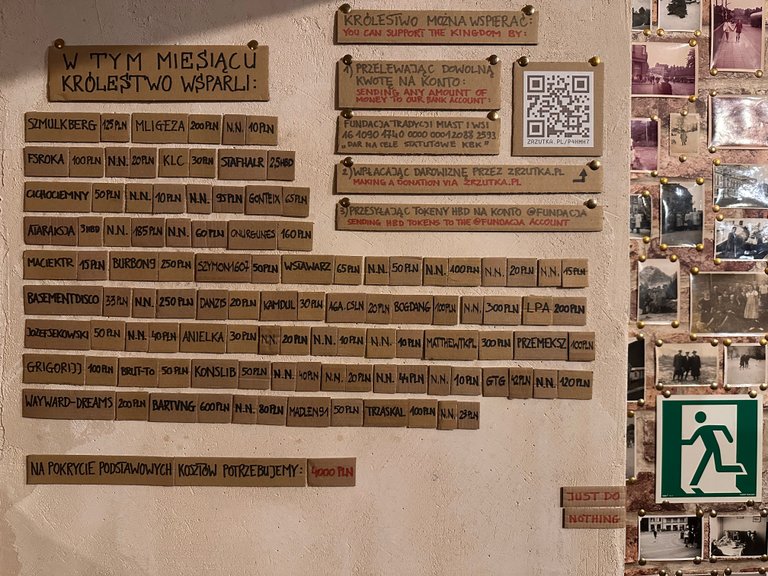 W TYM MIESIĄCU
KRÓLESTWO WSPARLI:
SZMULKBERG 125 PLN MLIGEZA 200 PLN N.N. 10 PLN
FSROKA 100 PLN N.N. 20 PLN KLC 30 PLN STAFHALR 2,5 HBD
CICHOCIEMNY 50 PLN N.N. 10 PLN N.N. 95 PLN GONTEIX 65 PLN
ATARAKSJA 3 HBD N.N. 185 PLN N.N. 60 PLN ONURGUNES 160 PLN
MACIEKTR 15 PLN BURBON9 250 PLN SZYMON1607 50 PLN WSTAWARZ 65 PLN N.N. 50 PLN N.N. 100 PLN N.N. 20 PLN N.N. 15 PLN
BASEMENTDISCO 33 PLN N.N. 250 PLN DANZIS 20 PLN KAMDUL 30 PLN AGA.CSLN 20 PLN BOGDANG 100 PLN N.N. 300 PLN LPA 200 PLN
JOZEFSEKOWSKI 50 PLN N.N. 40 PLN ANIELKA 30 PLN N.N. 20 PLN N.N. 10 PLN N.N. 10 PLN MATTHEWTKPL 300 PLN PRZEMEKSZ 100 PLN
GRIGORIJJ 100 PLN BRUT-TO 50 PLN KONSLIB 50 PLN N.N. 40 PLN N.N. 20 PLN N.N. 44 PLN N.N. 10 PLN GTG 42 PLN N.N. 120 PLN
WAYWARD-DREAMS 200 PLN BARTVNG 600 PLN N.N. 80 PLN MADLEN91 50 PLN TRZASKAL 100 PLN N.N. 25 PLN
NA POKRYCIE PODSTAWOWYCH KOSZTÓW POTRZEBUJEMY: 4000 PLN
KRÓLESTWO MOŻNA WSPIERAĆ:
YOU CAN SUPPORT THE KINGDOM BY:
1) PRZELEWAJĄC DOWOLNĄ
KWOTĘ NA KONTO:
SENDING ANY AMOUNT OF
MONEY TO OUR BANK ACCOUNT:
FUNDACJA TRADYCJI MIAST I WSI
16 1090 1740 0000 0001 2088 2593
"DAR NA CELE STATUTOWE KBK"
ZRZUTKA.PL/P4HMH7
2) WPŁACAJĄC DAROWIZNĘ PRZEZ ZRZUTKA.PL
MAKING A DONATION VIA ZRZUTKA.PL
3) PRZESYŁAJĄC TOKENY HBD NA KONTO @FUNDACJA
SENDING HBD TOKENS TO THE @FUNDACJA ACCOUNT
JUST DO
NOTHING